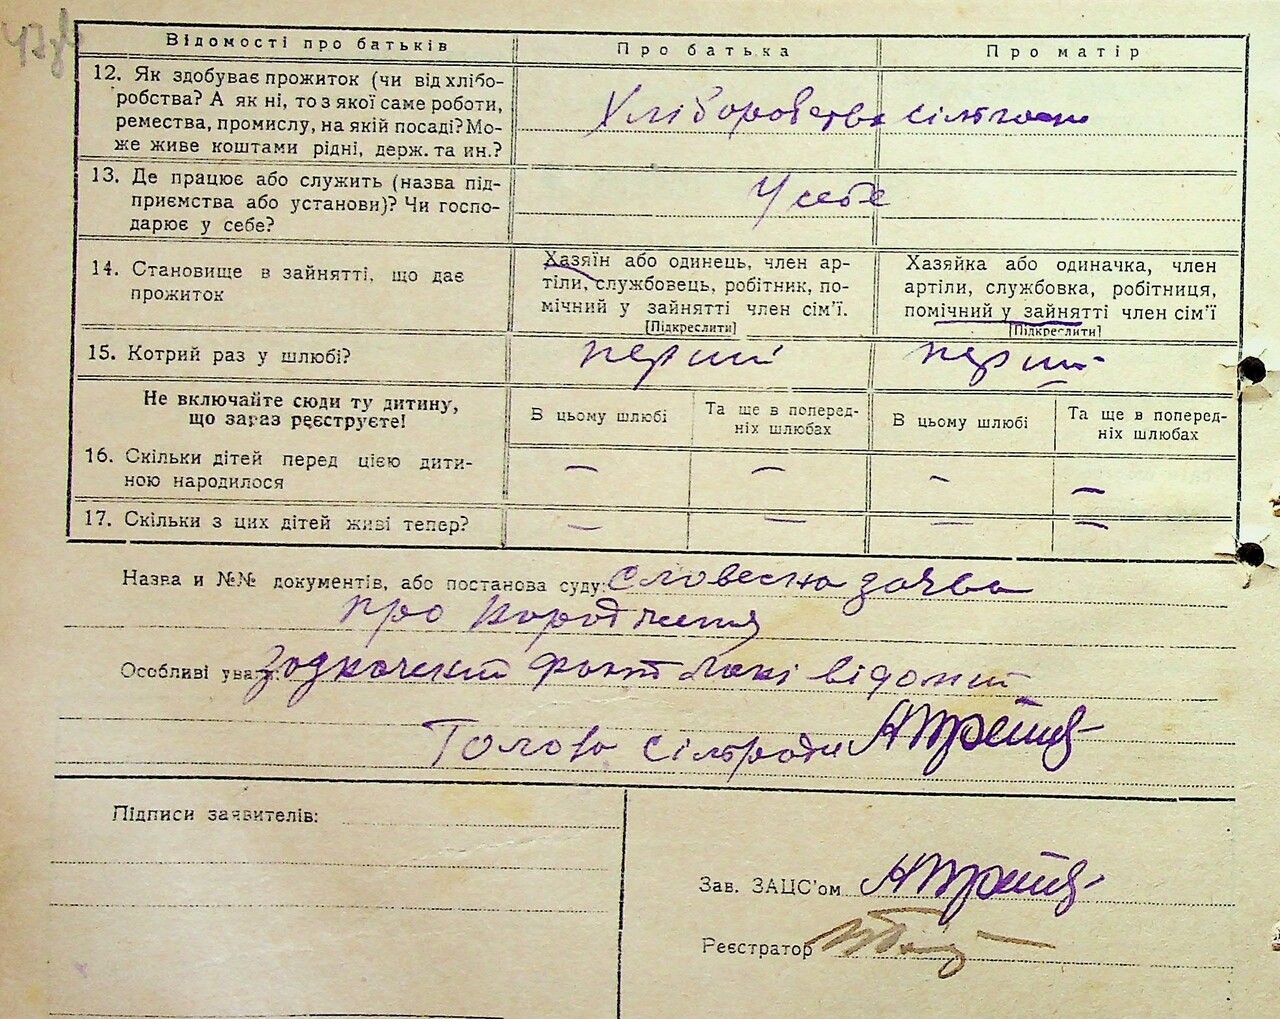 47зв
Відомості про батьків
Про батька
Про матір
12. Як здобуває прожиток (чи від хлібо-
робства? А як ні, то з якої саме роботи,
ремества, промислу, на якій посаді? Мо-
же живе коштами рідні, держ. та ин.?
Хліборобства
13. Де працює або служить (назва під-
приємства або установи)? Чи госпо-
дарює у себе?
У себе
14. Становище в зайнятті, що дає
прожиток
Хазяїн або одинець, член ар-
тіли, службовець, робітник, по-
мічний у зайнятті член сім'ї.
[Підкреслити]
Хазяйка або одиначка, член
артіли, службовка, робітниця,
помічний у зайнятті член сім'ї
[Підкреслити]
15. Котрий раз у шлюбі?
перший
перший
Не включайте сюди ту дитину,
що зараз реєструєте!
В цьому шлюбі
Та ще в поперед-
ніх шлюбах
В цьому шлюбі
Та ще в поперед-
ніх шлюбах
16. Скільки дітей перед цією дити-
ною народилося
— — — —
17. Скільки з цих дітей живі тепер?
— — — —
Назва и №№ документів, або постанова суду: Словесна заява
про народження
Особливі уваги: Зазначений факт мені відомий
Голова сільради
Підписи заявителів:
Зав. ЗАЦС'ом
Реєстратор